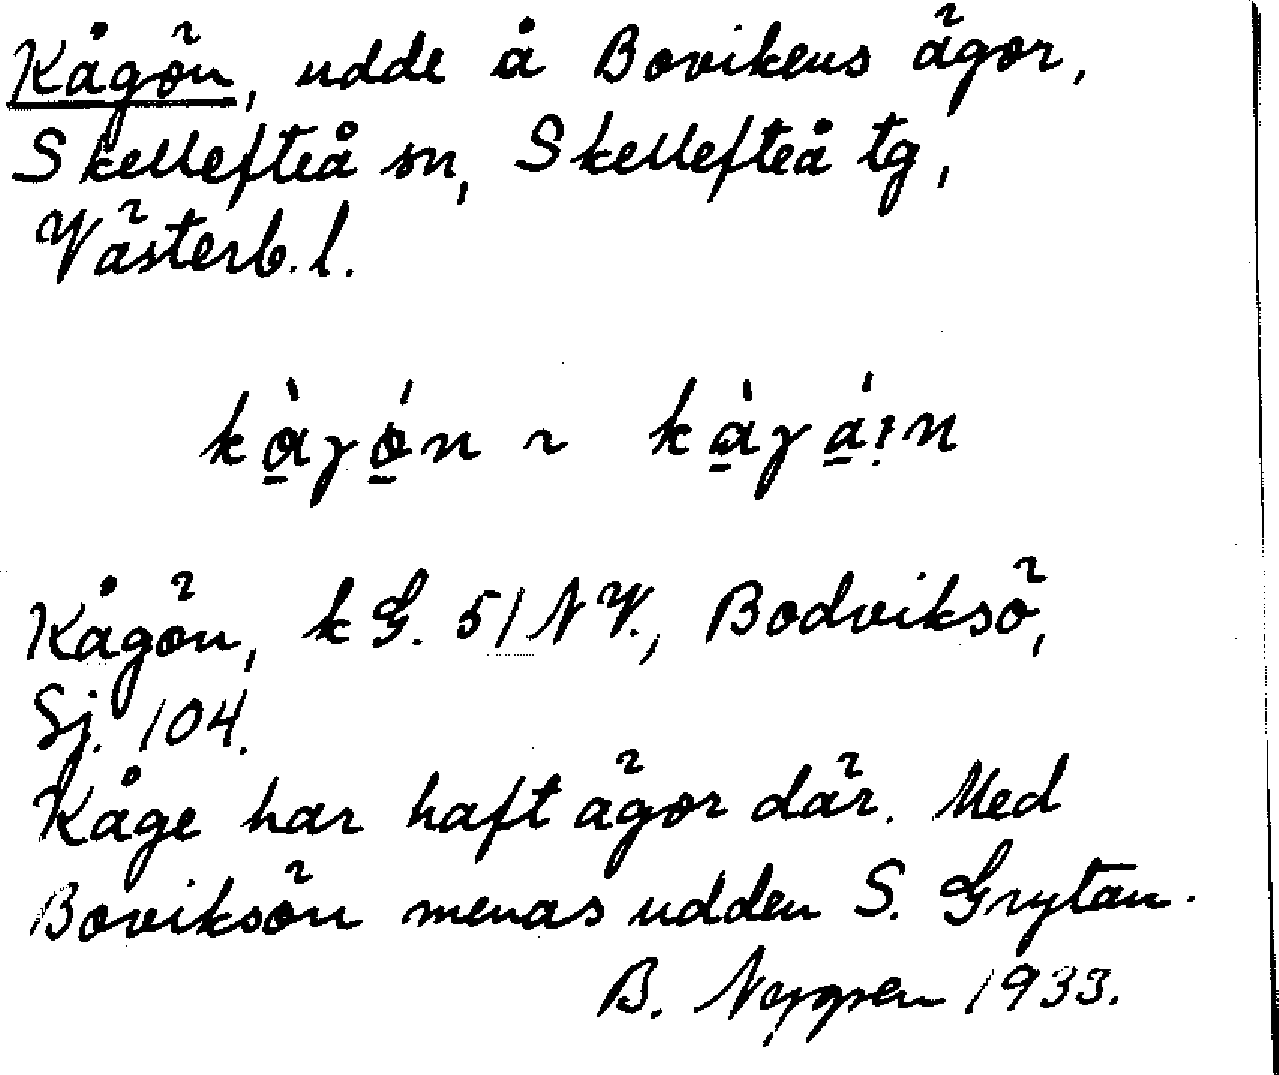 Kågön, udde å Bovikens ägor,
Skellefteå sn, Skellefteå tg,
Västerb. l.
kɑ̱̀ɣó̱n ~ kà̱ɣá̱ın
Kågön, k G. 51 NV., Bodviksö,
Sj. 104.
Kåge har haft ägor där. Med
Boviksön menas udden S. Grytan.
B. Nygren 1933.